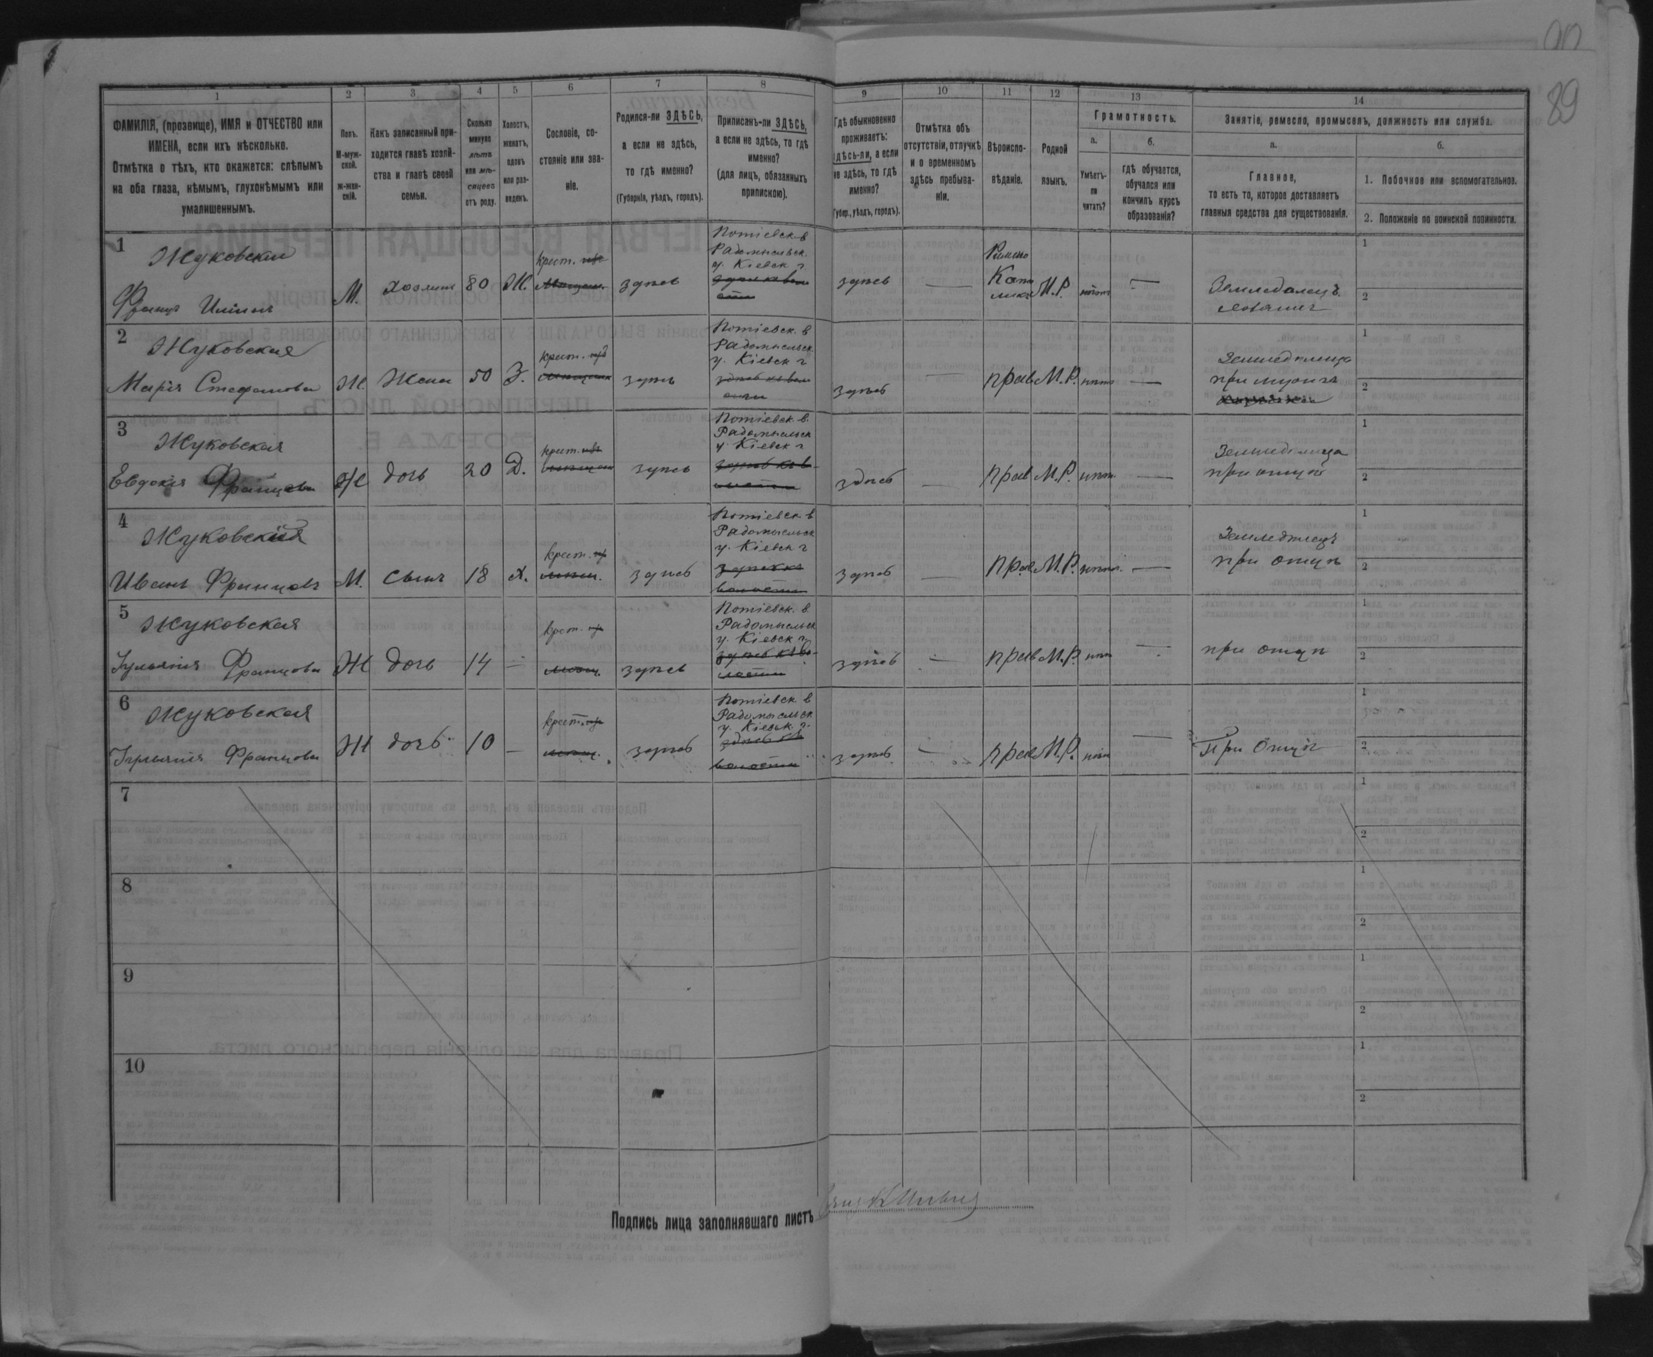 89
1
2
3
4
5
6
7
8
9
10
11
12
13
14
ФАМИЛІЯ, (прозвище), ИМЯ и ОТЧЕСТВО или
ИМЕНА, если ихъ нѣсколько.
Отмѣтка о тѣхъ, кто окажется: слѣпымъ
на оба глаза, нѣмымъ, глухонѣмымъ или
умалишеннымъ.
Полъ.
М-муж-
ской.
ж-жен-
скій.
Какъ записанный при-
ходится главѣ хозяй-
ства и главѣ своей
семьи.
Сколько
минуло
лѣтъ
или мѣ-
сяцевъ
отъ роду.
Холостъ,
женатъ,
вдовъ
или раз-
веденъ.
Сословіе, со-
стояніе или зва-
ніе.
Родился-ли ЗДѢСЬ,
а если не здѣсь,
то гдѣ именно?
(Губернія, уѣздъ, городъ).
Приписанъ-ли ЗДѢСЬ,
а если не здѣсь, то гдѣ
именно?
(для лицъ, обязанныхъ
припискою).
Гдѣ обыкновенно
проживаетъ:
здѣсь-ли, а если
не здѣсь, то гдѣ
именно?
(Губер., уѣздъ, городъ).
Отмѣтка объ
отсутствіи, отлучкѣ
и о временномъ
здѣсь пребыва-
ніи.
Вѣроиспо-
вѣданіе.
Родной
языкъ.
Грамотность.
а.
Умѣетъ-
ли
читать?
б.
гдѣ обучается,
обучался или
кончилъ курсъ
образованія?
Занятіе, ремесло, промыселъ, должность или служба.
а.
Главное,
то есть то, которое доставляетъ
главныя средства для существованія.
б.
1. Побочное или вспомогательное.
2. Положеніе по воинской повинности.
1
Жуковскій
Францъ
М.
хозяинъ
80
Ж.
крест.
здѣсь
Потіевск. в
Радомысльск.
у. Кіевск г
здѣсь
—
Римско
Като
лик.
М.Р.
нѣтъ
—
Земледѣлецъ
хозяинъ
1
2
2
Жуковская
Марія Стефанова
Ж
Жена
50
З.
крест.
здѣсь
Потіевск. в
Радомысльск
у. Кіевск г
здѣсь
—
прав
М.Р.
нѣтъ
—
Земледѣлица
при мужѣ
1
2
3
Жуковская
Евдокія Францова
Ж
дочь
20
Д.
крест.
здѣсь
Потіевск. в.
Радомысльск
у Кіевск г
здѣсь
—
прав
М.Р.
нѣтъ
—
Земледѣлица
при отцѣ
1
2
4
Жуковскій
Иванъ Францовъ
М.
сынъ
18
х.
крест.
здѣсь
Потіевск. в
Радомысльск
у. Кіевск г
здѣсь
—
прав
М.Р.
нѣтъ
—
Земледѣлецъ
при отцѣ
1
2
5
Жуковская
Францова
Ж
дочь
14
—
крест.
здѣсь
Потіевск. в
Радомысльск
у. Кіевск г.
здѣсь
—
прав
М.Р.
нѣтъ
—
при отцѣ
1
2
6
Жуковская
Францова
Ж
дочь
10
—
крест.
здѣсь
Потіевск в
Радомысльск
у. Кіевск. г.
здѣсь
—
прав
М.Р.
нѣтъ
—
При Отцѣ
1
2
7
1
2
8
1
2
9
1
2
10
1
2
Подпись лица заполнявшаго листъ